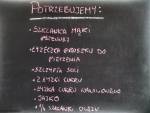 POTRZEBUJEMY:
• SZKLANKA MĄKI
PSZENNEJ
• ŁYŻECZKA PROSZKU DO
PIECZENIA
• SZCZYPTA SOLI
• 2 ŁYŻKI CUKRU
• ŁYŻKA CUKRU WANILIOWEGO
• JAJKO
• 1/4 SZKLANKI OLEJU